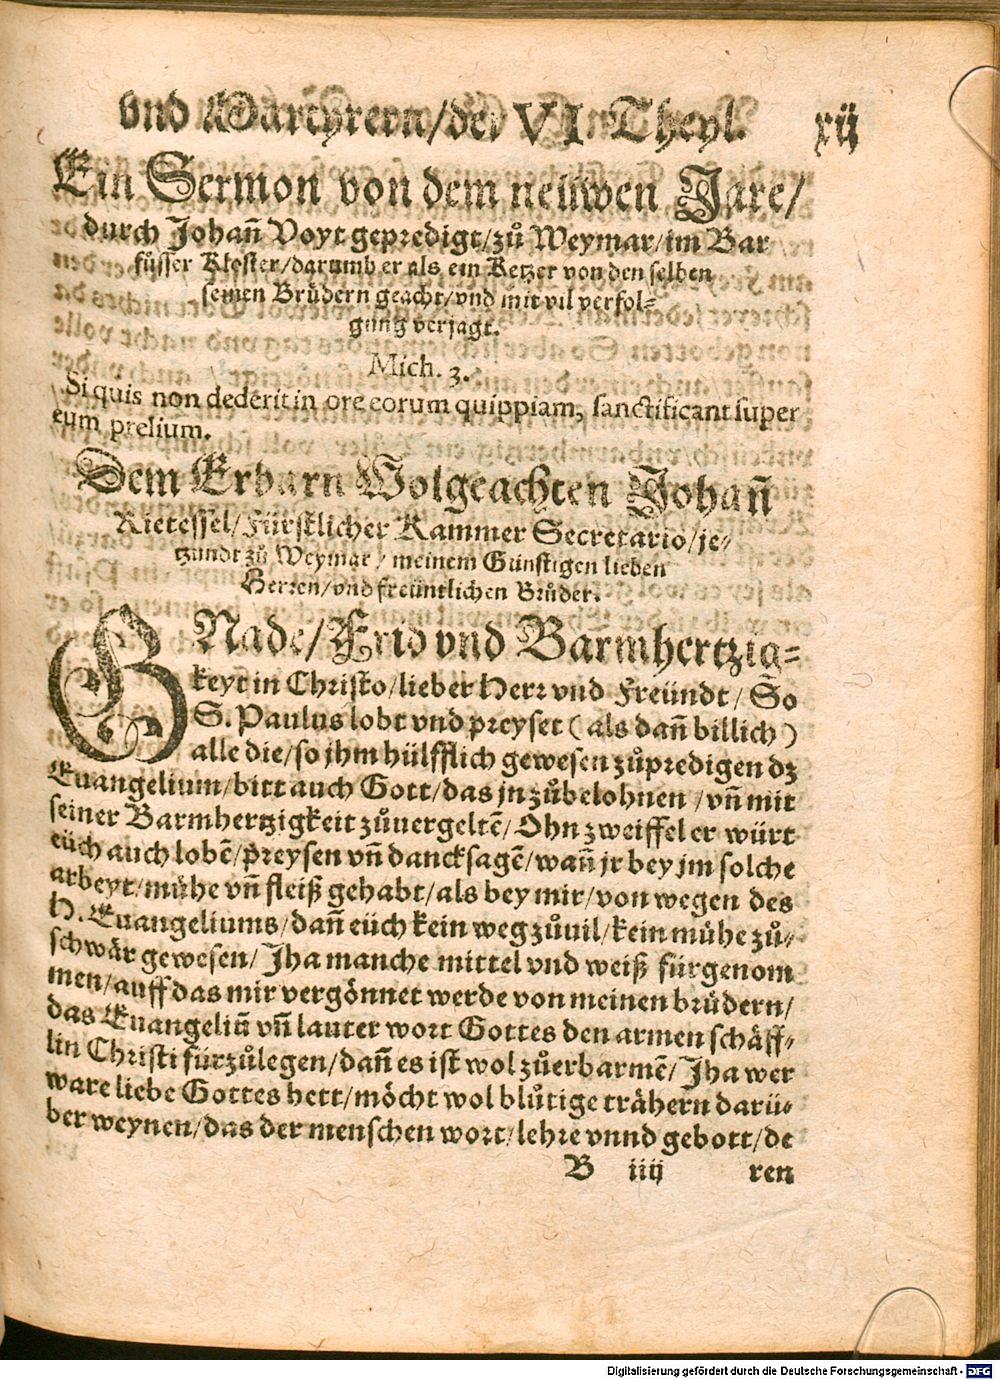 vnd Martyrern/der VI Theyl. xij
Ein Sermon von dem neüwen Jare/
durch Johañ Voyt gepredigt/zů Weymar/im Bar
füsser Kloster/darumb er als ein Ketzer von den selben
seinen Brůdern geacht/vnd mit vil verfol-
gung verjagt.
Mich. 3.
Si quis non dederit in ore eorum quippiam, sanctificant super
eum prelium.
Dem Erbarn Wolgeachten Johañ
Rietessel/Fürstlicher Kammer Secretario/je-
tzundt zů Weymar/meinem Günstigen lieben
Herren/vnd freüntlichen Brůder.
GNade/Frid vnd Barmhertzig-
keyt in Christo/lieber Herr vnd Freündt/So
S. Paulus lobt vnd preyset (als dañ billich)
alle die/so jhm hülfflich gewesen zůpredigen dz
Euangelium/bitt auch Gott/das jn zůbelohnen/vñ mit
seiner Barmhertzigkeit zůuergeltẽ/Ohn zweiffel er würt
eüch auch lobẽ/preysen vñ dancksagẽ/wañ jr bey jm solche
arbeyt/mühe vñ fleiß gehabt/als bey mir/von wegen des
H. Euangeliums/dañ eüch kein weg zůuil/kein mühe zů-
schwär gewesen/Jha manche mittel vnd weiß fürgenom
men/auff das mir vergönnet werde von meinen brůdern/
das Euangeliũ vñ lauter wort Gottes den armen schäff-
lin Christi fürzůlegen/dañ es ist wol zůerbarmẽ/Jha wer
ware liebe Gottes hett/möcht wol blůtige trähern darü-
ber weynen/das der menschen wort/lehre vnnd gebott/de
B iiij ren
Digitalisierung gefördert durch die Deutsche Forschungsgemeinschaft - DFG